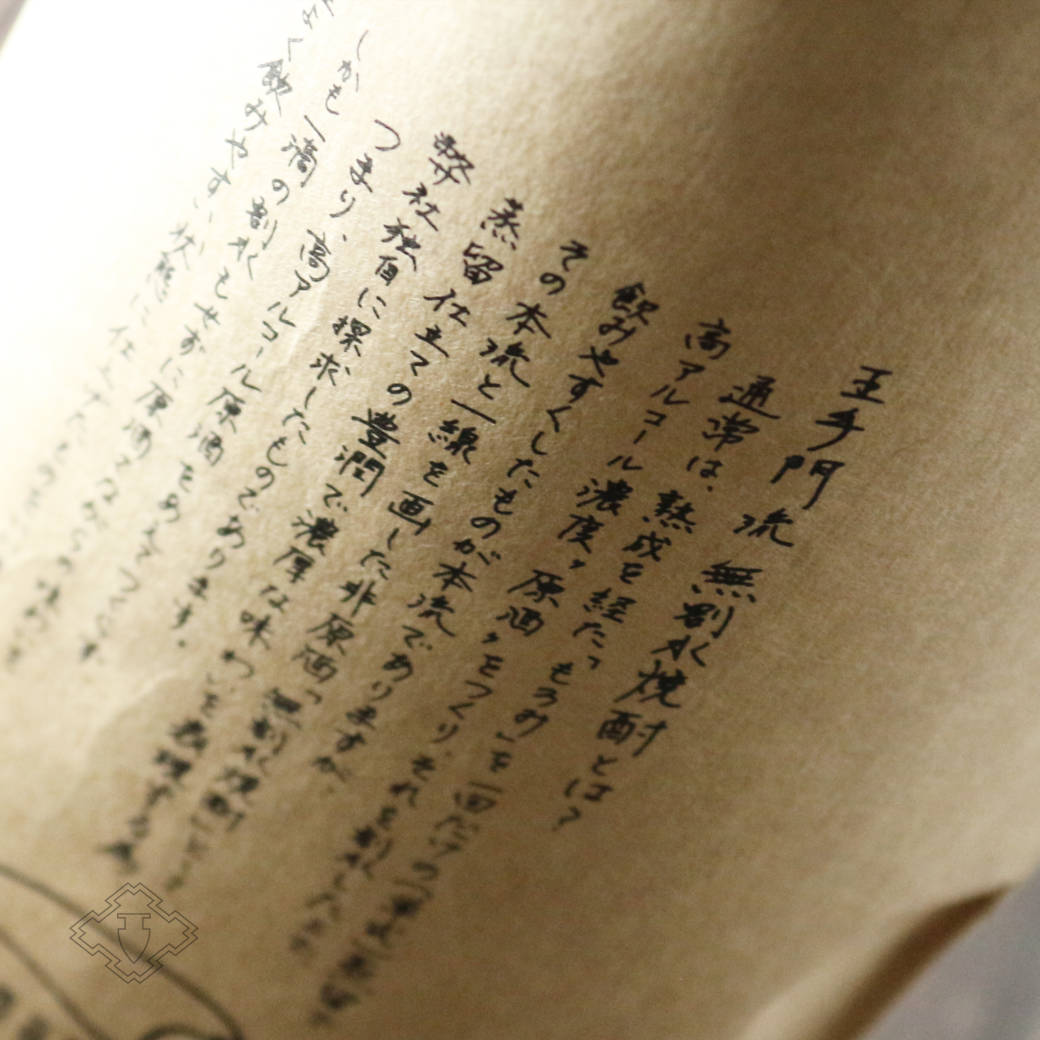 王手門流 無割水焼酎とは?
通常は、熟成を経た「もろみ」を一回だけの「単式」蒸留
高アルコール濃度〝原酒〟をつくり、それを割水した
飲みやすくしたものが本流でありますが、
その本流と一線を画した非原酒「無割水焼酎」とは
蒸留仕立ての豊潤で濃厚な味わいを表現する為
弊社独自に探求したものであります。
つまり、高アルコール原酒をあえてつくらず
しかも一滴の割水もせずに原酒さながらの味わい
よく飲みやすい状態に仕上げたもの